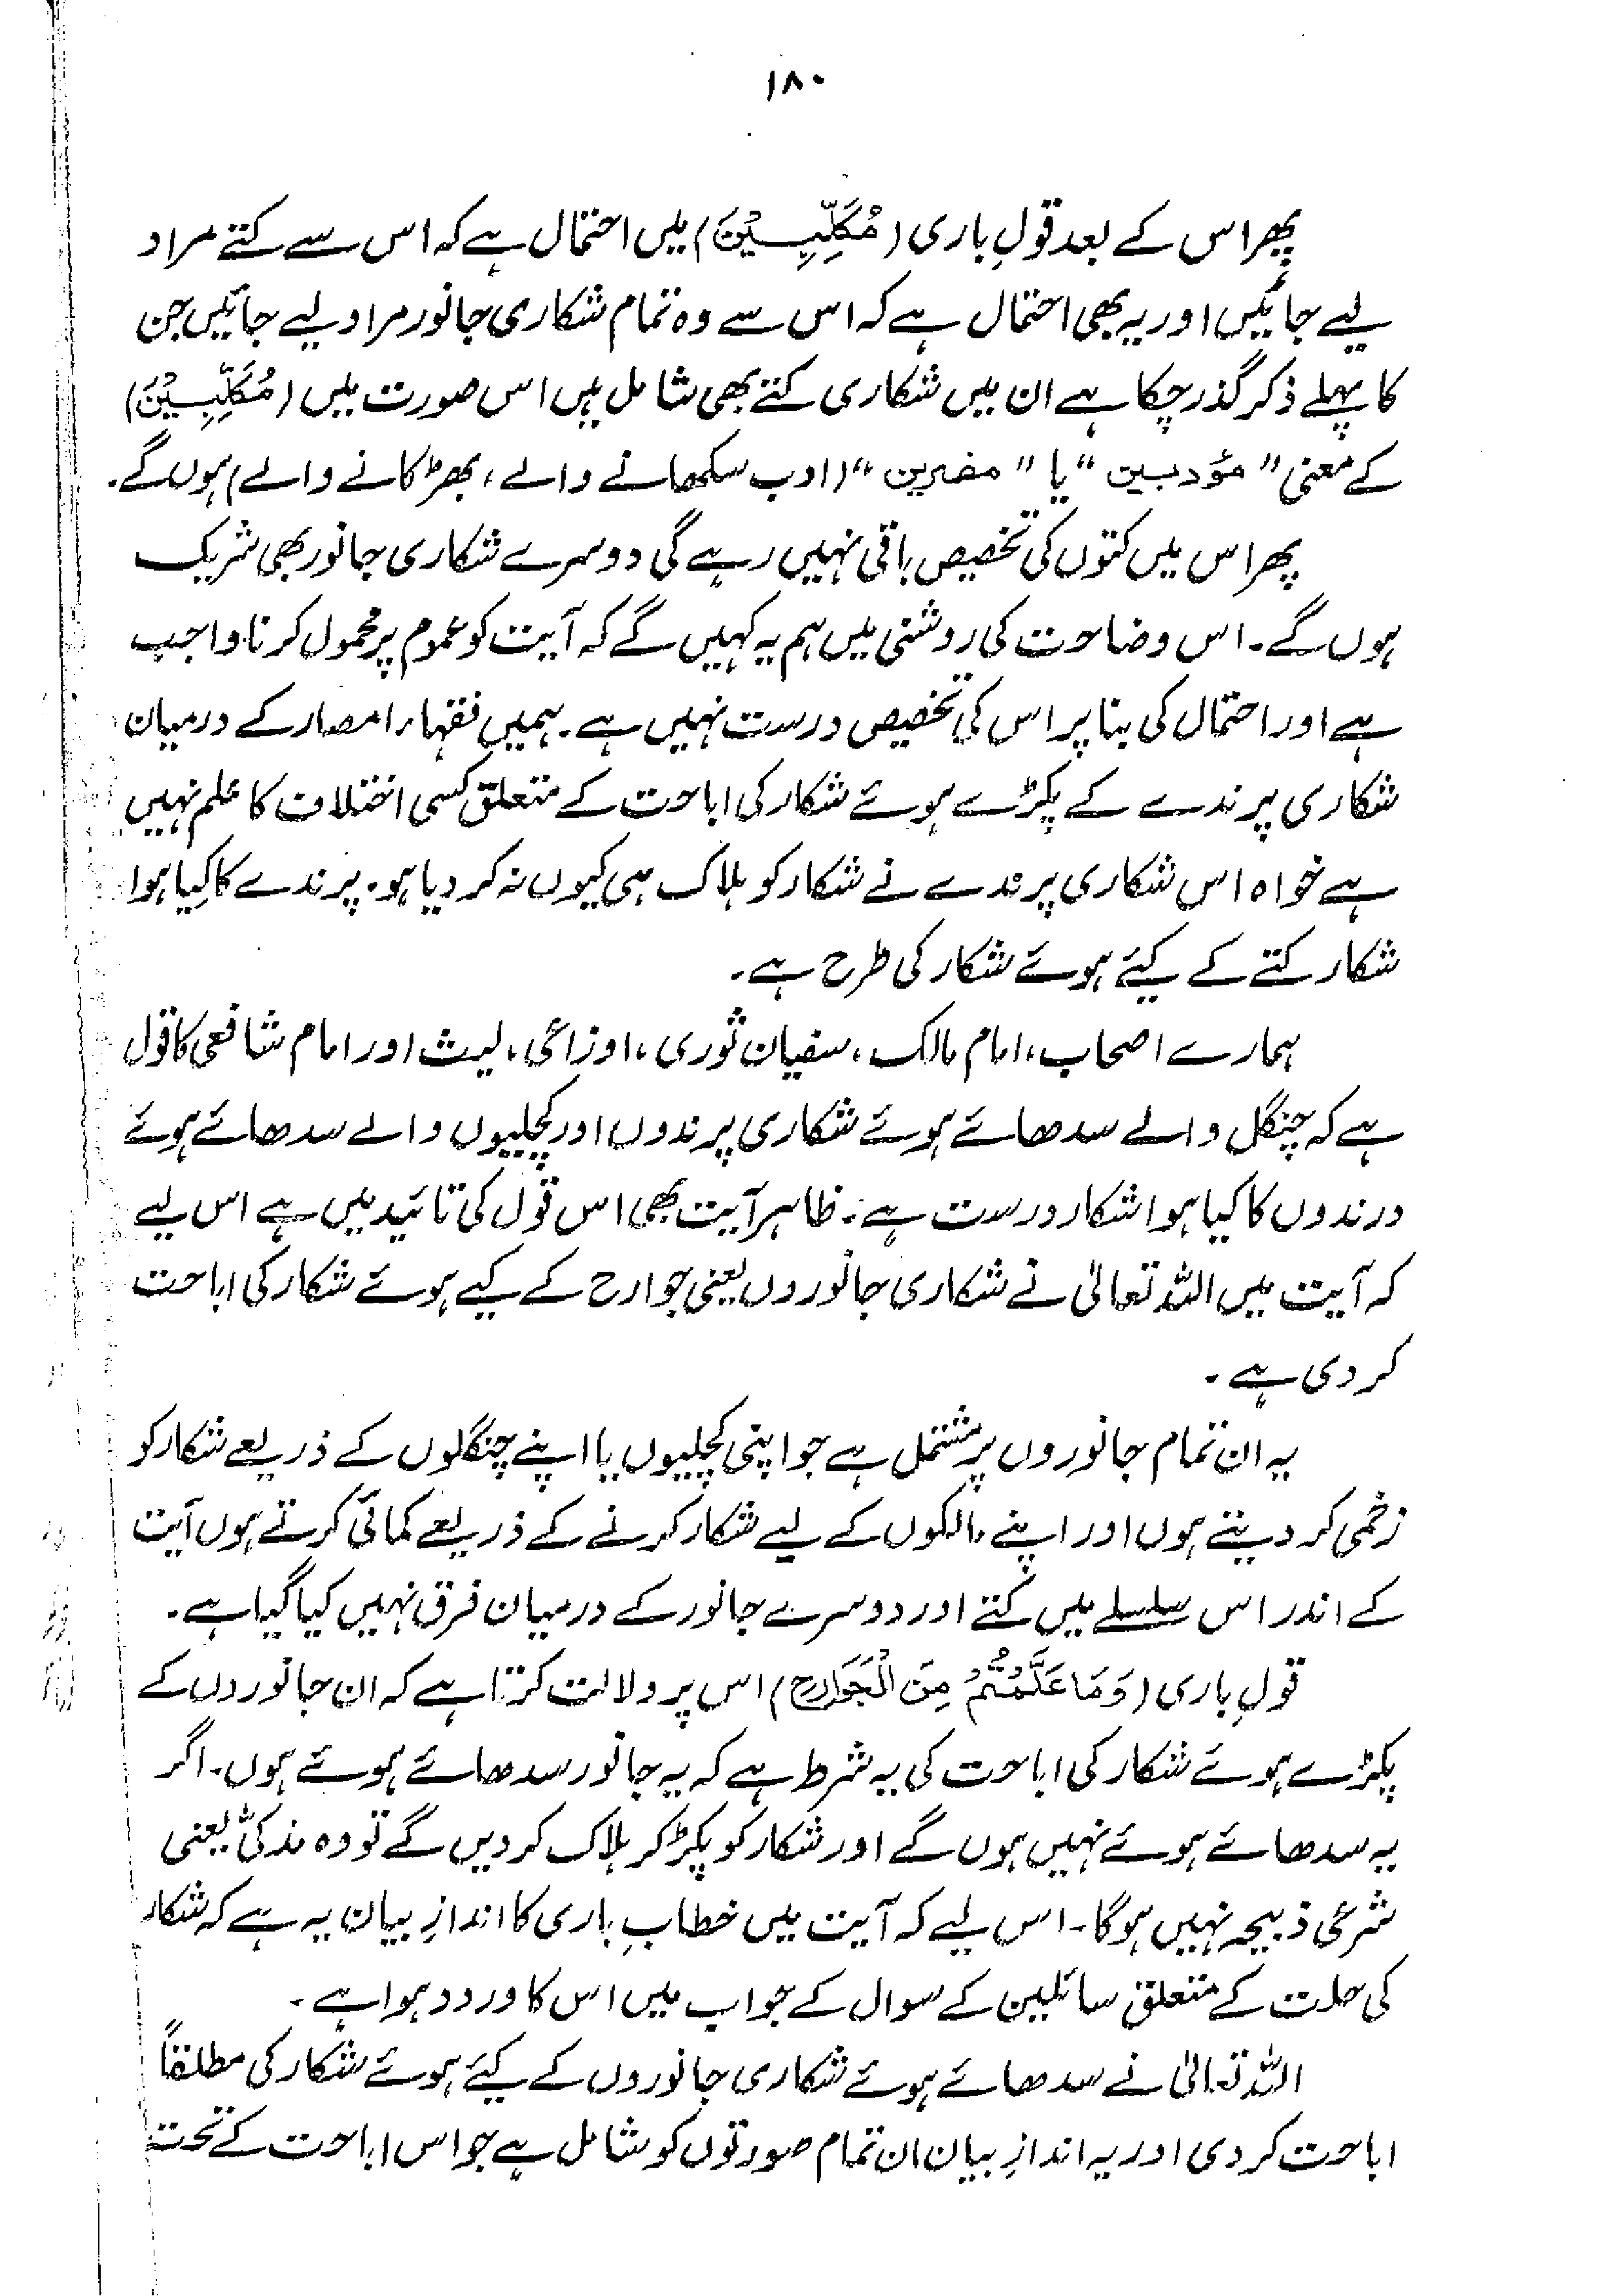 ۱۸۰
پھر اس کے بعد قولِ باری (مُكَلِّبِيْنَ) میں احتمال ہے کہ اس سے کتے مراد
لیے جائیں اور یہ بھی احتمال ہے کہ اس سے وہ تمام شکاری جانور مراد لیے جائیں جن
کا پہلے ذکر گذر چکا ہے ان میں شکاری کتے بھی شامل ہیں اس صورت میں (مُكَلِّبِيْنَ)
کے معنی "مؤدبین" یا "مضرین" (ادب سکھانے والے، بھڑکانے والے) ہوں گے۔
پھر اس میں کتوں کی تخصیص باقی نہیں رہے گی دوسرے شکاری جانور بھی شریک
ہوں گے۔ اس وضاحت کی روشنی میں ہم یہ کہیں گے کہ آیت کو عموم پر محمول کرنا واجب
ہے اور احتمال کی بنا پر اس کی تخصیص درست نہیں ہے۔ ہمیں فقہاء امصار کے درمیان
شکاری پرندے کے پکڑے ہوئے شکار کی اباحت کے متعلق کسی اختلاف کا علم نہیں
ہے خواہ اس شکاری پرندے نے شکار کو ہلاک ہی کیوں نہ کر دیا ہو۔ پرندے کا کِیا ہوا
شکار کتے کے کیئے ہوئے شکار کی طرح ہے۔
ہمارے اصحاب، امام مالک، سفیان ثوری، اوزاعی، لیث اور امام شافعی کا قول
ہے کہ چنگل والے سدھائے ہوئے شکاری پرندوں اور کچلیوں والے سدھائے ہوئے
درندوں کا کیا ہوا شکار درست ہے۔ ظاہر آیت بھی اس قول کی تائید میں ہے اس لیے
کہ آیت میں اللہ تعالیٰ نے شکاری جانوروں یعنی جوارح کے کیے ہوئے شکار کی اباحت
کر دی ہے۔
یہ ان تمام جانوروں پر مشتمل ہے جو اپنی کچلیوں یا اپنے چنگلوں کے ذریعے شکار کو
زخمی کر دیتے ہوں اور اپنے مالکوں کے لیے شکار کرنے کے ذریعے کمائی کرتے ہوں آیت
کے اندر اس سلسلے میں کتے اور دوسرے جانور کے درمیان فرق نہیں کیا گیا ہے۔
قولِ باری (وَمَا عَلَّمْتُمْ مِنَ الْجَوَارِحِ) اس پر دلالت کرتا ہے کہ ان جانوروں کے
پکڑے ہوئے شکار کی اباحت کی یہ شرط ہے کہ یہ جانور سدھائے ہوئے ہوں۔ اگر
یہ سدھائے ہوئے نہیں ہوں گے اور شکار کو پکڑ کر ہلاک کر دیں گے تو وہ مذکیّٰ یعنی
شرعی ذبیحہ نہیں ہوگا۔ اس لیے کہ آیت میں خطابِ باری کا اندازِ بیان یہ ہے کہ شکار
کی حلت کے متعلق سائلین کے سوال کے جواب میں اس کا ورود ہوا ہے۔
اللہ تعالیٰ نے سدھائے ہوئے شکاری جانوروں کے کیئے ہوئے شکار کی مطلقاً
اباحت کر دی اور یہ اندازِ بیان ان تمام صورتوں کو شامل ہے جو اس اباحت کے تحت